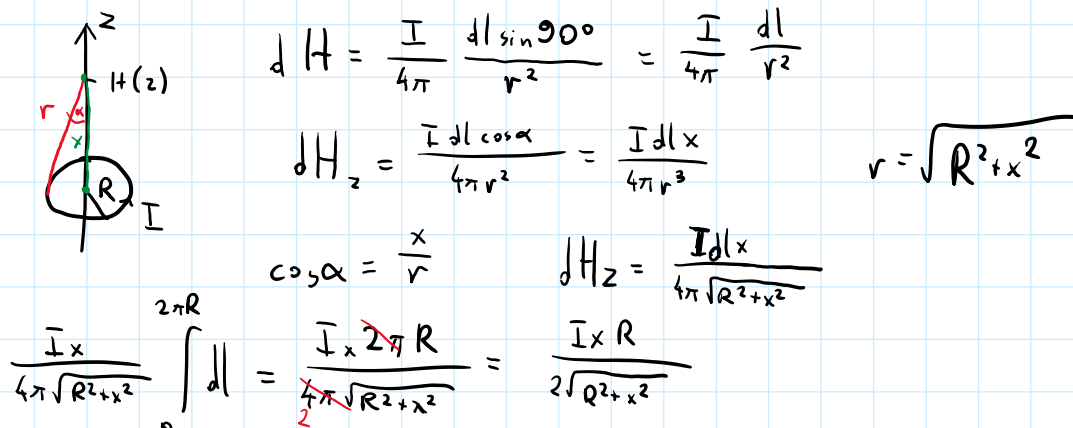 z
H(z)
r
α
x
R
I
dH = I/4π dl sin90°/r² = I/4π dl/r²
dH_z = I dl cosα/4πr² = I dl x/4πr³
r = √(R²+x²)
cosα = x/r
dH_z = I dl x/4π√(R²+x²)
Ix/4π√(R²+x²) ∫^2πR dl = I x 2π R/4π√(R²+x²) = I x R/2√(R²+x²)
2